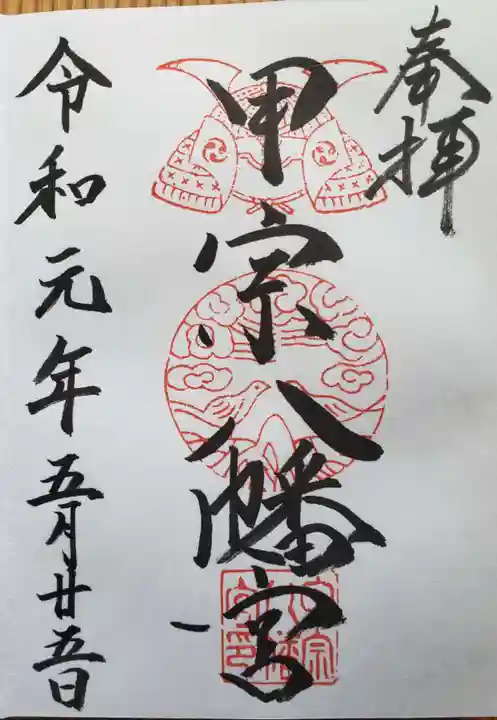 奉拝
甲宗八幡宮
令和元年五月廿五日